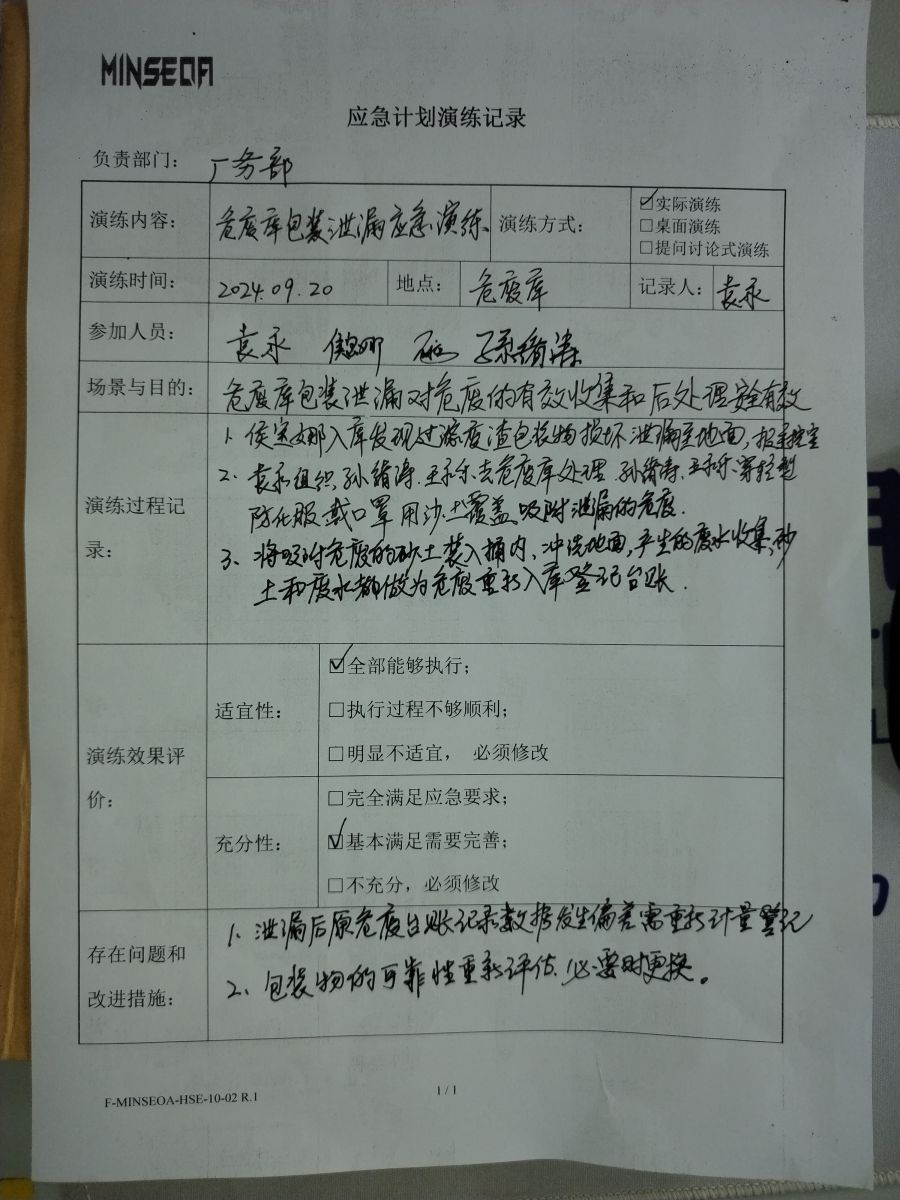 MINSEOA
应急计划演练记录
负责部门: 厂务部
演练内容: 危废库包装泄漏应急演练. 演练方式: ☑实际演练
☐桌面演练
☐提问讨论式演练
演练时间: 2024.09.20 地点: 危废库 记录人: 袁永
参加人员: 袁永
场景与目的: 危废库包装泄漏对危废的有效收集和后处理安全有效
演练过程记录:
1. 侯宝娜入库发现过滤废渣包装物损坏泄漏至地面,报
2. 袁永组织孙绪涛.王永乐去危废库处理.孙绪涛.王永乐穿轻型
防化服.戴口罩用沙土覆盖吸附泄漏的危废.
3. 将吸附危废的砂土装入桶内,冲洗地面,产生的废水收集,砂
土和废水都做为危废重新入库登记台账.
演练效果评价:
适宜性:
☑全部能够执行;
☐执行过程不够顺利;
☐明显不适宜, 必须修改
充分性:
☐完全满足应急要求;
☑基本满足需要完善;
☐不充分,必须修改
存在问题和改进措施:
1. 泄漏后原危废台账记录数据发生偏差需重新计量登记
2. 包装物的可靠性重新评估.必要时更换。
F-MINSEOA-HSE-10-02 R.1
1 / 1